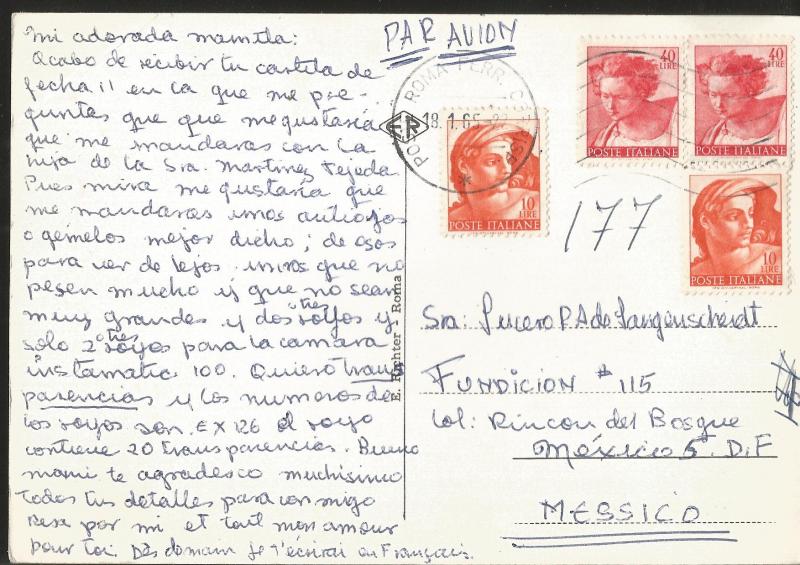 PAR AVION
mi adorada mamita:
Acabo de recibir tu cartita de
fecha 11 en la que me pre-
guntas que que me gustaria
que me mandaras con la
hija de la Sra. Martinez Tejeda
Pues mira me gustaria que
me mandaras unos antiojos
o gemelos mejor dicho; de esos
para ver de lejos. unos que no
pesen mucho y que no sean
muy grandes y dos otros rollos y
solo 2 otros royos para la camara
instamatic 100. Quiero trans
parencias y los numeros de
los royos son. EX 126 el royo
contiene 20 transparencias. Bueno
mami te agradesco muchisimo
todos tus detalles para conmigo
Resa por mi et tout mon amour
pour toi. Dès domain je t'écrirai en Français.
E. Richter - Roma
ER
ROMA FERR.
18.1.65
40
LIRE
POSTE ITALIANE
40
LIRE
POSTE ITALIANE
10
LIRE
POSTE ITALIANE
10
LIRE
POSTE ITALIANE
177
Sra: Lucero P.A de Langenscheidt
FUNDICION # 115
Col: Rincon del Bosque
México 5. D.F
MESSICO